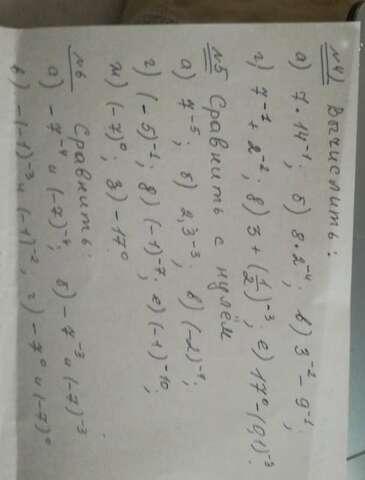 №4) Вычислить:
а) 7·14⁻¹; б) 8·2⁻⁴; в) 3⁻² – 9⁻¹;
г) 7⁻¹ + 2⁻²; д) 3 + (1/2)⁻³; е) 17⁰ – (0,1)⁻³.
№5 Сравнить с нулём
а) 7⁻⁵; б) 2,3⁻³; в) (–2)⁻⁸;
г) (–5)⁻¹; д) (–1)⁻⁷; е) (–1)⁻¹⁰;
ж) (–7)⁰; з) –17⁰
№6 Сравнить:
а) –7⁻⁴ и (–7)⁻⁴; б) –7⁻³ и (–7)⁻³
в) –(–1)⁻³ и (–1)⁻², г) –7⁰ и (–7)⁰